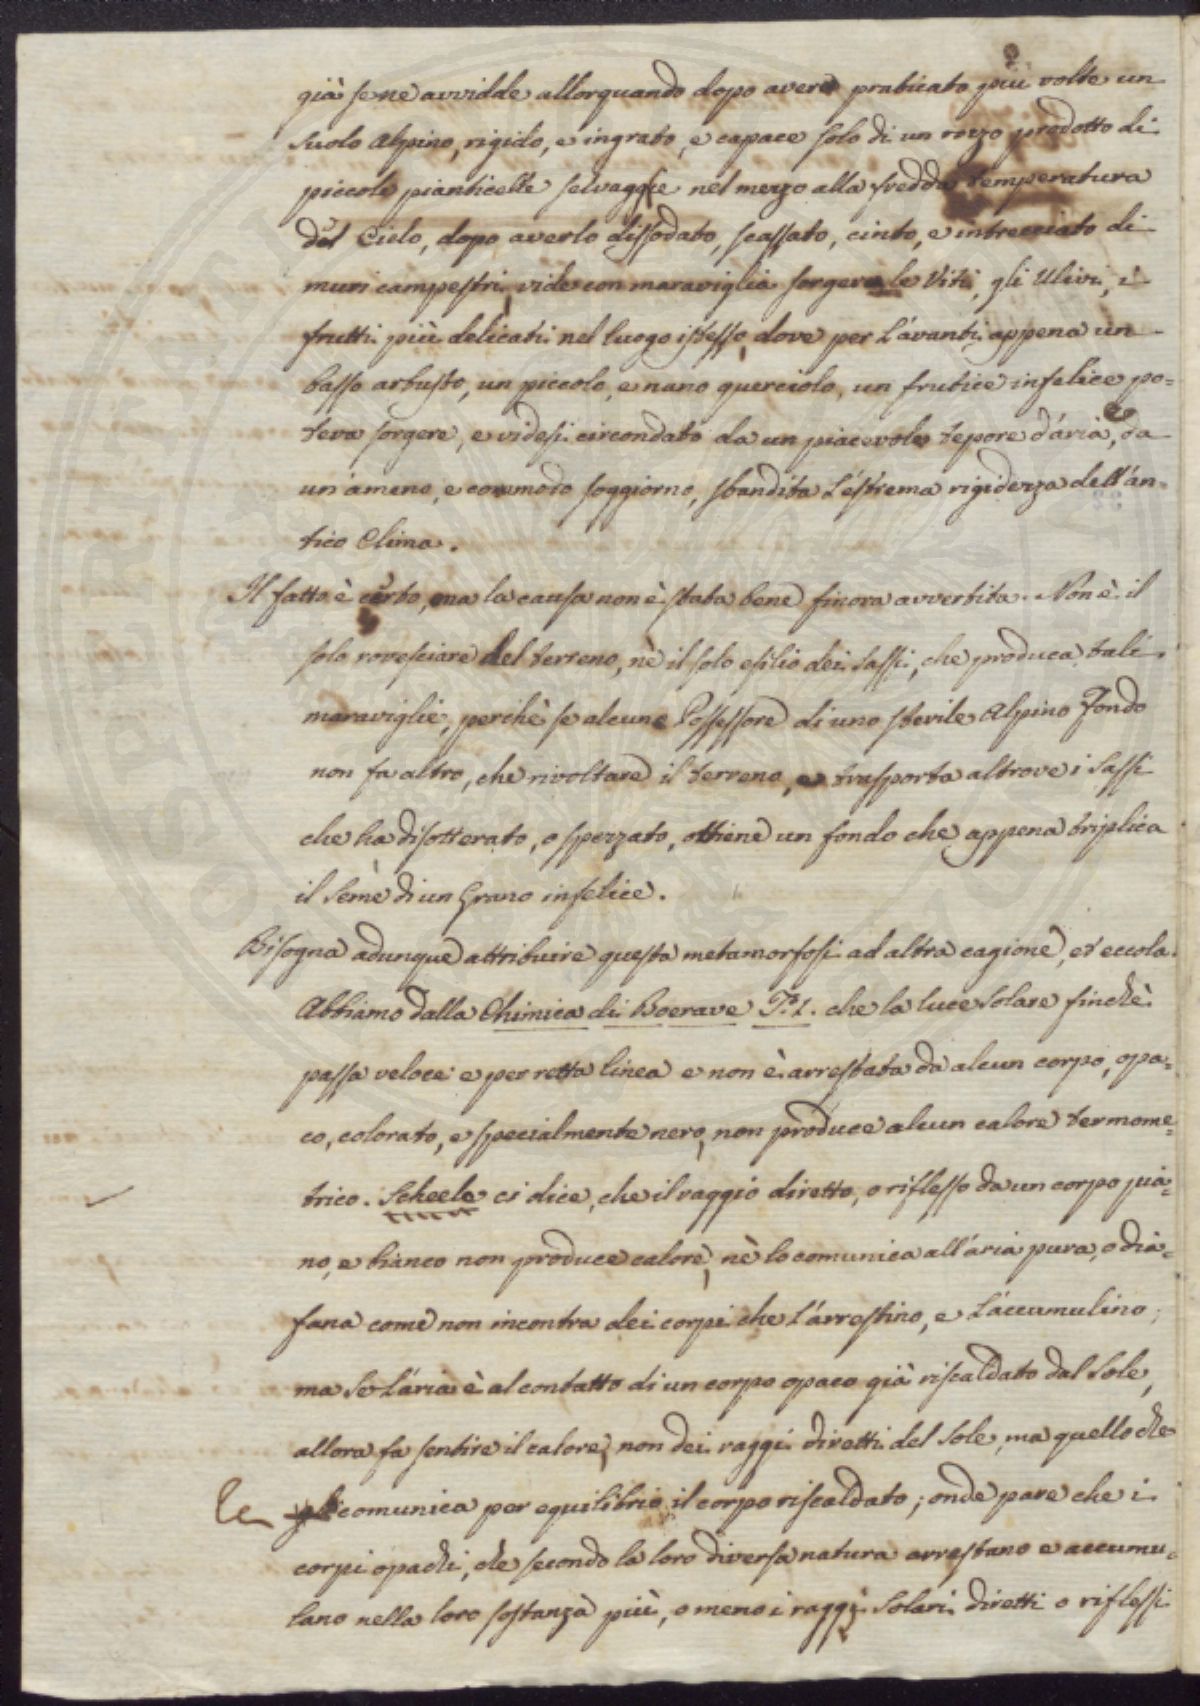 già se ne avvidde allorquando dopo avere praticato più volte un
suolo Alpino, rigido, e ingrato, e capace solo di un rozzo prodotto di
piccole pianticelle selvaggie nel mezzo alla fredda temperatura
del Cielo, dopo averlo dissodato, scassato, cinto, e intrecciato di
muri campestri, vide con maraviglia sorgere le Viti, gli Ulivi, i
frutti più delicati nel luogo istesso, dove per l'avanti appena un
basso arbusto, un piccolo, e nano querciolo, un frutice infelice po=
teva sorgere, e videsi circondato da un piacevole tepore d'aria, e da
un'ameno, e commodo soggiorno, sbandita l'estrema rigidezza dell'an=
tico Clima.
Il fatto è certo, ma la causa non è stata bene finora avvertita. Non è il
solo rovesciare del terreno, nè il solo esilio dei sassi, che produca tali
maraviglie, perchè se alcune Possessore di uno sterile Alpino Fondo
non fa altro, che rivoltare il terreno, e trasporta altrove i sassi
che ha disotterato, o spezzato, ottiene un fondo che appena triplica
il seme di un Grano infelice.
Bisogna adunque attribuire questa metamorfosi ad altra cagione, ed eccola.
Abbiamo dalla Chimica di Boerave T. 1. che la luce solare finchè
passa veloce e per retta linea e non è arrestata da alcun corpo, opa=
co, colorato, e specialmente nero, non produce alcun calore termome=
trico. Scheele ci dice, che il raggio diretto, o riflesso da un corpo pia=
no, e bianco non produce calore, nè lo comunica all'aria pura, o dia=
fana come non incontra dei corpi che l'arrestino, e l'accumulino;
ma se l'aria è al contatto di un corpo opaco già riscaldato dal Sole,
allora fa sentire il calore, non dei raggi diretti del Sole, ma quello che
le comunica per equilibrio il corpo riscaldato; onde pare che i
corpi opachi, che secondo la loro diversa natura arrestano e accumu=
lano nella loro sostanza più, o meno i raggi Solari diretti o riflessi